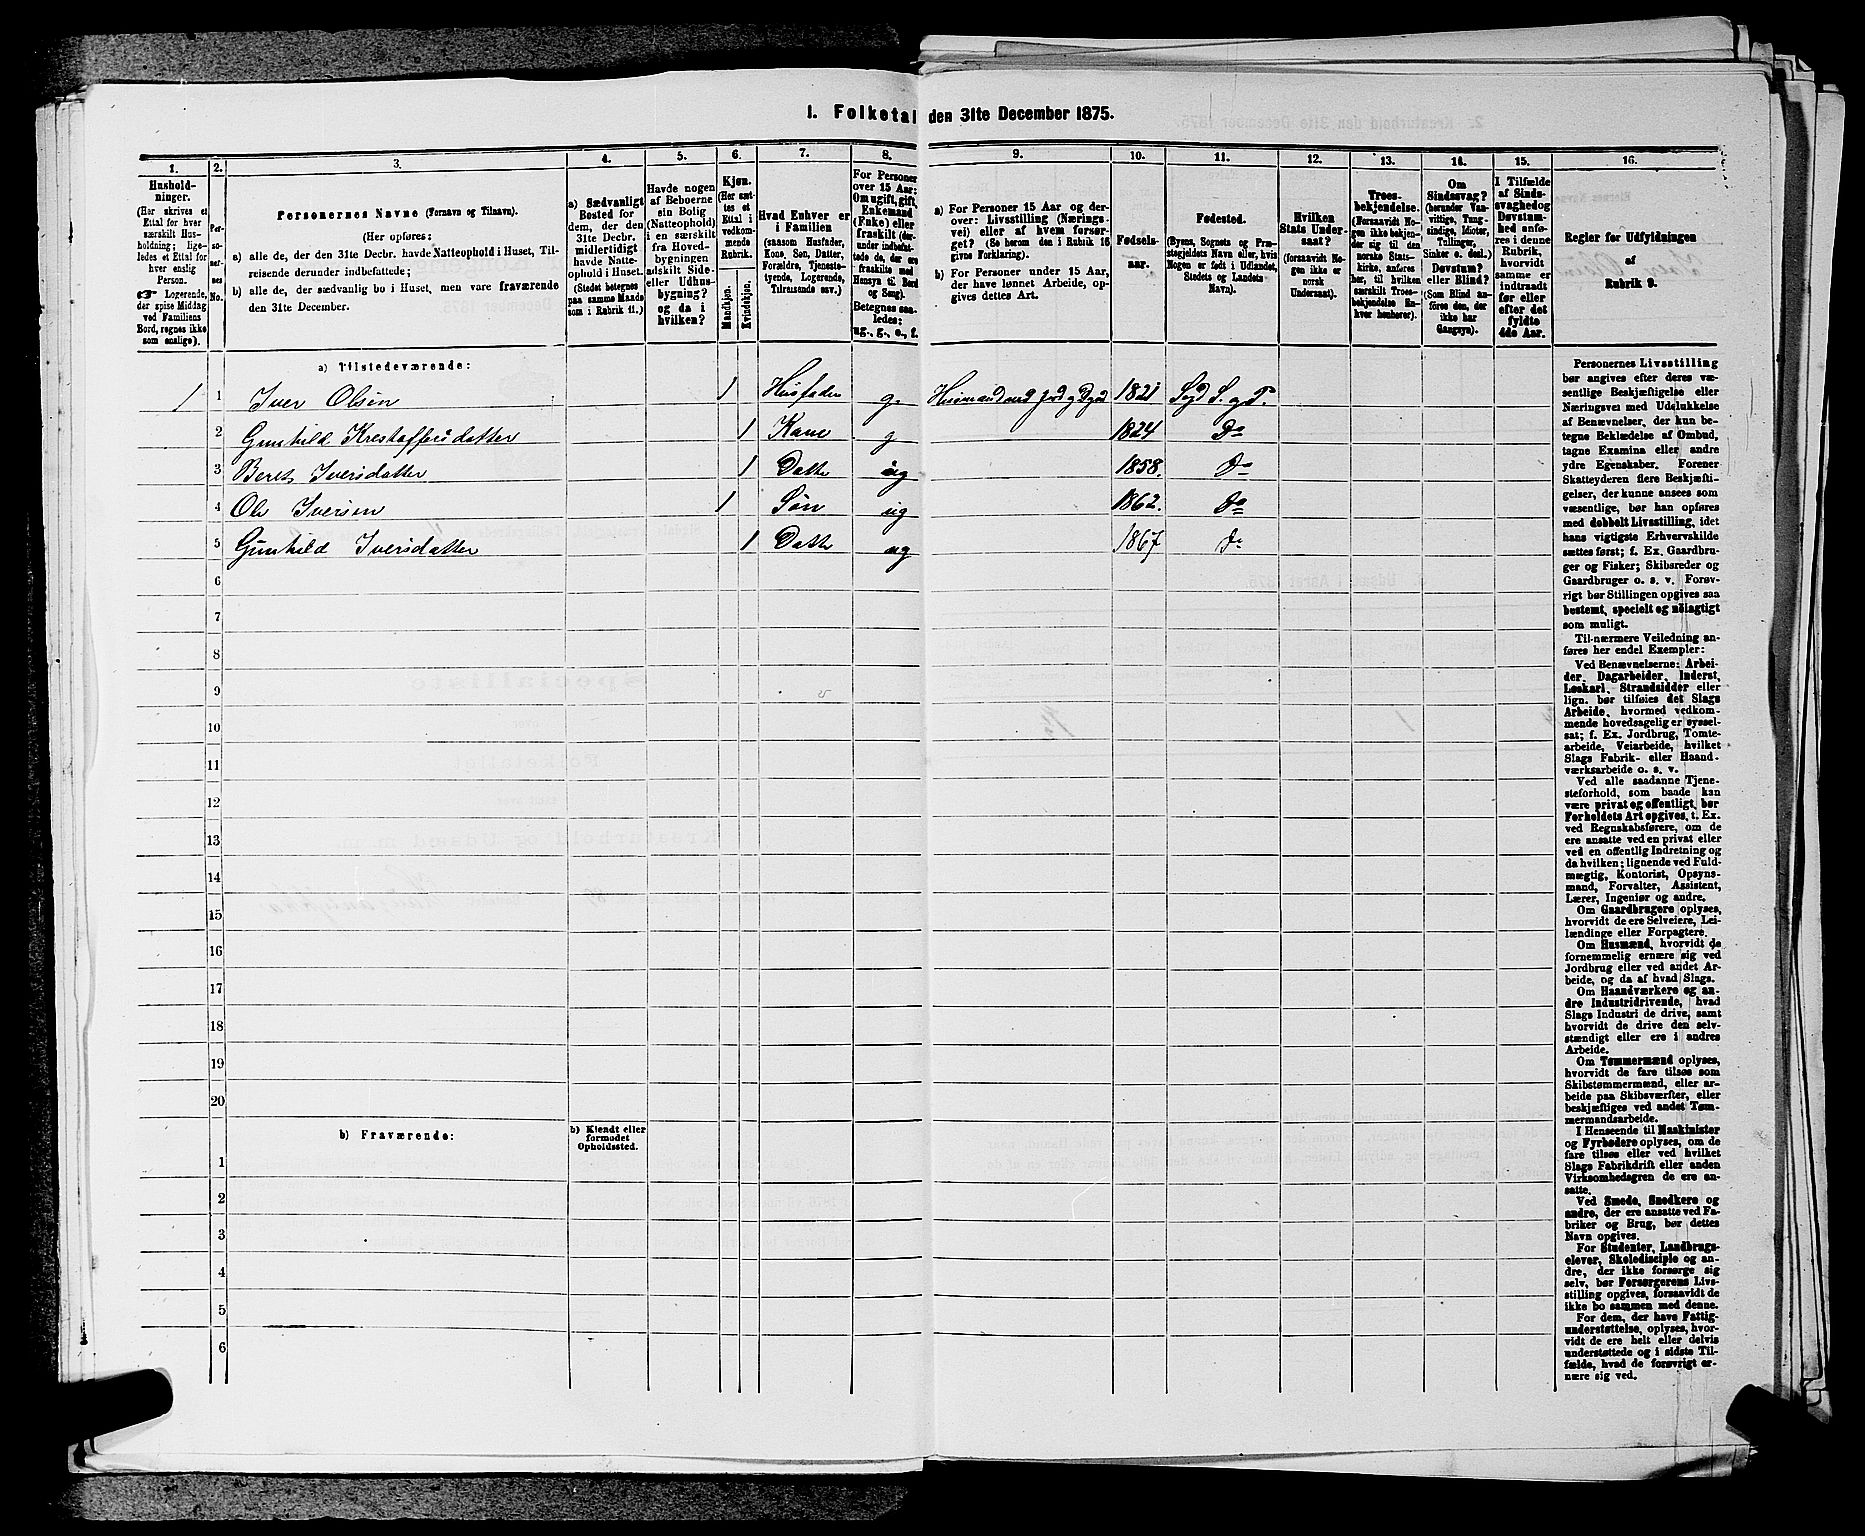 1. Folketal den 31te December 1875.
1.
2.
3.
4.
5.
6.
7.
8.
9.
10.
11.
12.
13.
14.
15.
16.
Hushold-
ninger.
(Her skrives et
Ettal for hver
særskilt Hus-
holdning; lige-
ledes et Ettal for
hver enslig
Person.
☞ Logerende,
der spise Middag
ved Familiens
Bord, regnes ikke
som enslige).
Per-
so-
ner-
nes
No.
Personernes Navne (Fornavn og Tilnavn).
(Her opføres:
a) alle de, der den 31te Decbr. havde Natteophold i Huset, Til-
reisende derunder indbefattede;
b) alle de, der sædvanlig bo i Huset, men vare fraværende
den 31te December.
a) Sædvanligt
Bosted for
dem, der den
31te Decbr.
midlertidigt
havde Natte-
ophold i Huset.
(Stedet betegnes
paa samme Maade
som i Rubrik 11.)
Havde nogen
af Beboerne
sin Bolig
(Natteophold)
i en særskilt
fra Hoved-
bygningen
adskilt Side-
eller Udhus-
bygning?
og da i
hvilken?
Kjøn.
(Her sæt-
tes et
Ettal i
vedkom-
mende
Rubrik.
Mandkjøn.
Kvindekjøn.
Hvad Enhver er
i Familien
(saasom Husfader,
Kone, Søn, Datter,
Forældre, Tjeneste-
tyende, Logerende,
Tilreisende osv.)
For Personer
over 15 Aar;
Om ugift, gift,
Enkemand
(Enke) eller
fraskilt (der-
under indbefat-
tede de, der ere
fraskilte med
Hensyn til Bord
og Seng).
Betegnes saa-
ledes:
ug., g., e., f.
a) For Personer 15 Aar og der-
over: Livsstilling (Nærings-
vei) eller af hvem forsør-
get? (Se herom den i Rubrik 16
givne Forklaring).
b) For Personer under 15 Aar,
der have lønnet Arbeide, op-
gives dettes Art.
Fødsels-
aar.
Fødested.
(Byens, Sognets og Præ-
stegjeldets Navn eller, hvis
Nogen er født i Udlandet,
Stedets og Landets
Navn).
Hvilken
Stats Under-
saat?
(forsaavidt No-
gen ikke er
norsk
Undersaat).
Troes-
bekjendelse.
(Forsaavidt No-
gen ikke bekjen-
der sig til den
norske Stats-
kirke, anføres
her, til hvilken
særskilt Troes-
bekjendelse En-
hver henhører).
Om
Sindssvag?
(herunder Van-
vittige, Tung-
sindige, Idioter,
Tullinger,
Sinker o. desl.)
Døvstum?
eller Blind?
(Som Blind an-
føres den, der
ikke har
Gangsyn).
I Tilfælde
af Sinds-
svaghed og
Døvstum-
hed anfø-
res i denne
Rubrik,
hvorvidt
samme er
indtraadt
før eller
efter det
fyldte
4de Aar.
Regler for Udfyldningen
af
Rubrik 9.
a) Tilstedeværende:
1 1 Iver Olsen 1 Husfader g. Husmand med Jord 1821 Sogd S. og P.
2 Gunhild Krestoffersdatter 1 Kone g 1824 Do
3 Beret Iversdatter 1 Datte ug 1858. Do
4 Ole Iversen 1 Søn ug 1862. Do
5 Gunhild Iversdatter 1 Datte ug 1867 Do
6
7
8
9
10
11
12
13
14
15
16
17
18
19
20
b) Fraværende:
b) Kjendt eller
formodet
Opholdssted.
1
2
3
4
5
6
Personernes Livsstilling
bør angives efter deres væ-
sentlige Beskjæftigelse eller
Næringsvei med Udelukkelse
af Benævnelser, der kun be-
tegne Beklædelse af Ombud,
tagne Examina eller andre
ydre Egenskaber. Forener
Skatteyderen flere Beskjæfti-
gelser, der kunne ansees som
væsentlige, bør han opføres
med dobbelt Livsstilling, idet
hans vigtigste Erhvervskilde
sættes først; f. Ex. Gaardbru-
ger og Fisker; Skibsreder og
Gaardbruger o. s. v. Forøv-
rigt bør Stillingen opgives saa
bestemt, specielt og nöiagtigt
som muligt.
Til nærmere Veiledning an-
føres her endel Exempler:
Ved Benævnelserne: Arbei-
der, Dagarbeider, Inderst,
Løskarl, Strandsidder eller
lign. bør tilføies det Slags
Arbeide, hvormed vedkom-
mende hovedsagelig er syssel-
sat; f. Ex. Jordbrug, Tomte-
arbeide, Veiarbeide, hvilket
Slags Fabrik- eller Haand-
værksarbeide o. s. v.
Ved alle saadanne Tjene-
steforhold, som baade kan
være privat og offentligt, bør
Forholdets Art opgives, t. Ex.
ved Regnskabsførere, om de
ere ansatte ved en privat eller
ved en offentlig Indretning og
da hvilken; lignende ved Fuld-
mægtig, Kontorist, Opsyns-
mand, Forvalter, Assistent,
Lærer, Ingeniør og andre.
Om Gaardbrugere oplyses,
hvorvidt de ere Selveiere, Lei-
lændinge eller Forpagtere.
Om Husmænd, hvorvidt de
fornemmelig ernære sig ved
Jordbrug eller ved andet Ar-
beide, og da af hvad Slags.
Om Haandværkere og an-
dre Industridrivende, hvad
Slags Industri de drive, samt
hvorvidt de drive den selv-
stændigt eller ere i andres
Arbeide.
Om Tømmermænd oplyses,
hvorvidt de fare tilsøs som
Skibstømmermænd, eller ar-
beide paa Skibsværfter, eller
beskjæftiges ved andet Tøm-
mermandsarbeide.
I Henseende til Maskinister
og Fyrbødere oplyses, om de
fare tilsøs eller ved hvilket
Slags Fabrikdrift eller anden
Virksomhedsgren de ere an-
satte.
Ved Smede, Snedkere og
andre, der ere ansatte ved Fa-
briker og Brug, bør dettes
Navn opgives.
For Studenter, Landbrugs-
elever, Skoledisciple og an-
dre, der ikke forsørge sig
selv, bør Forsørgerens Livs-
stilling opgives, forsaavidt de
ikke bo sammen med denne.
For dem, der have Fattig-
understøttelse, oplyses, hvor-
vidt de ere helt eller delvis
understøttede og i sidste Til-
fælde, hvad de forøvrigt er-
nære sig ved.